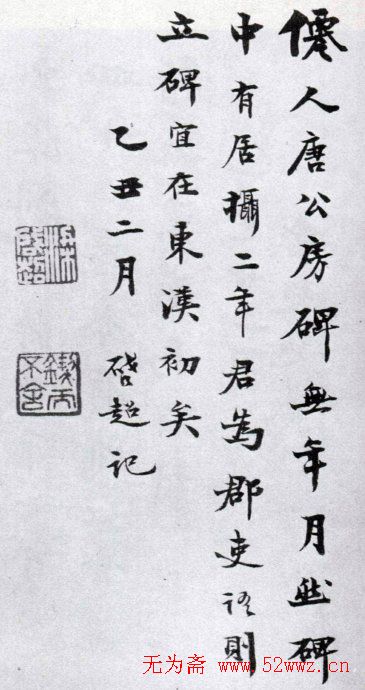 僊人唐公房碑無年月然碑
中有居攝二年君為郡吏語則
立碑宜在東漢初矣
乙丑二月 啓超記
梁啓超
鍥而不舍
无为斋 www.52wwz.cn